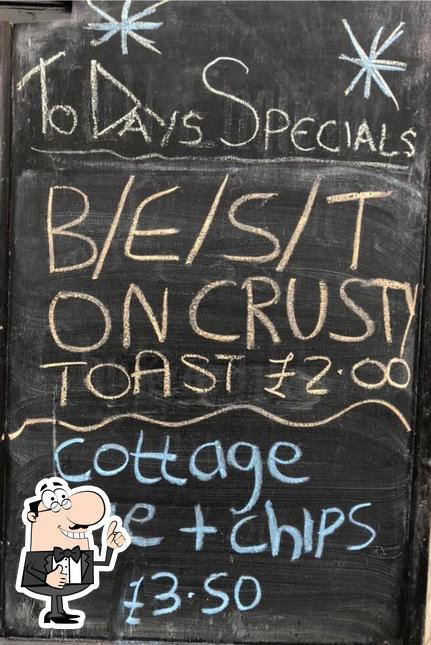 ToDays Specials
B/E/S/T
ON CRUSTY
TOAST £2.00
Cottage
+ chips
£3.50